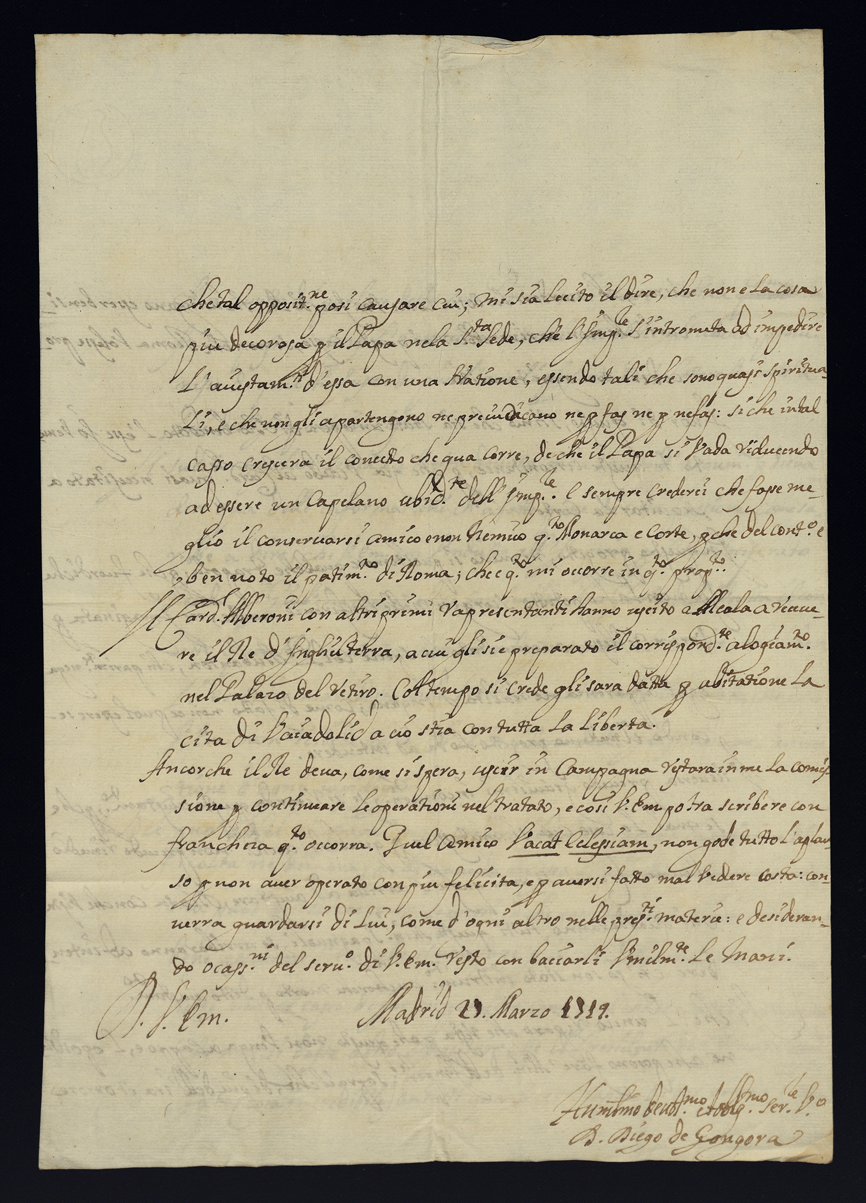 che tal opposit.ne posi causare cui; mi sia lecito il dire, che non e la cosa
piu decorosa p il Papa ne la S.ta Sede, che l'Imp.re s'intrometa ad impedire
l'aiustam.to d'essa con una Natione, essendo tali che sono quasi spiritua-
li, e che non gli apartengono ne preiudicano ne p fas ne p nefas: si che in tal
casso crescera il conceto che qua corre, de che il Papa si vada riducendo
ad essere un Capelano ubid.te dell'Imp.re. E sempre crederei che fosse me-
glio il conservarsi amico e non nemico q.to Monarca e Corte, p che del cont.o e
ben noto il patim.to di Roma; che q.to mi occorre in q.to prop.to.
Il Card.l Alberoni con altri primi rapresentanti hanno uscito a Alcala a riceve-
re il Re d'Inghilterra, a cui gli si e preparato il corrispond.te alogiam.to
nel Palazo del Retiro. Col tempo si crede gli sara datta p abitatione la
cita di Vaiadolid a cio stia con tutta la liberta.
Ancorche il Re deva, come si spera, uscir in Campagna restara in me la comis-
sione p continuare le operationi nel tratato, e cosi V. Em. potra scribere con
francheza q.to occorra. Quel Amico Vacat Eclesiam, non gode tutto l'aplau-
so p non aver operato con piu felicita, e p aversi fatto mal vedere costa: con-
verra guardarsi di Lui, come d'ogni altro nelle pres.ti materie: e desideran-
do ocass.ni del serv.o di V. Em. resto con bacciarli Vmilm.te Le Mani.
D. V. Em. Madrid 27. Marzo 1719.
Humilmo devot.mo et oblig.mo ser.te V.o
D. Diego de Gongora